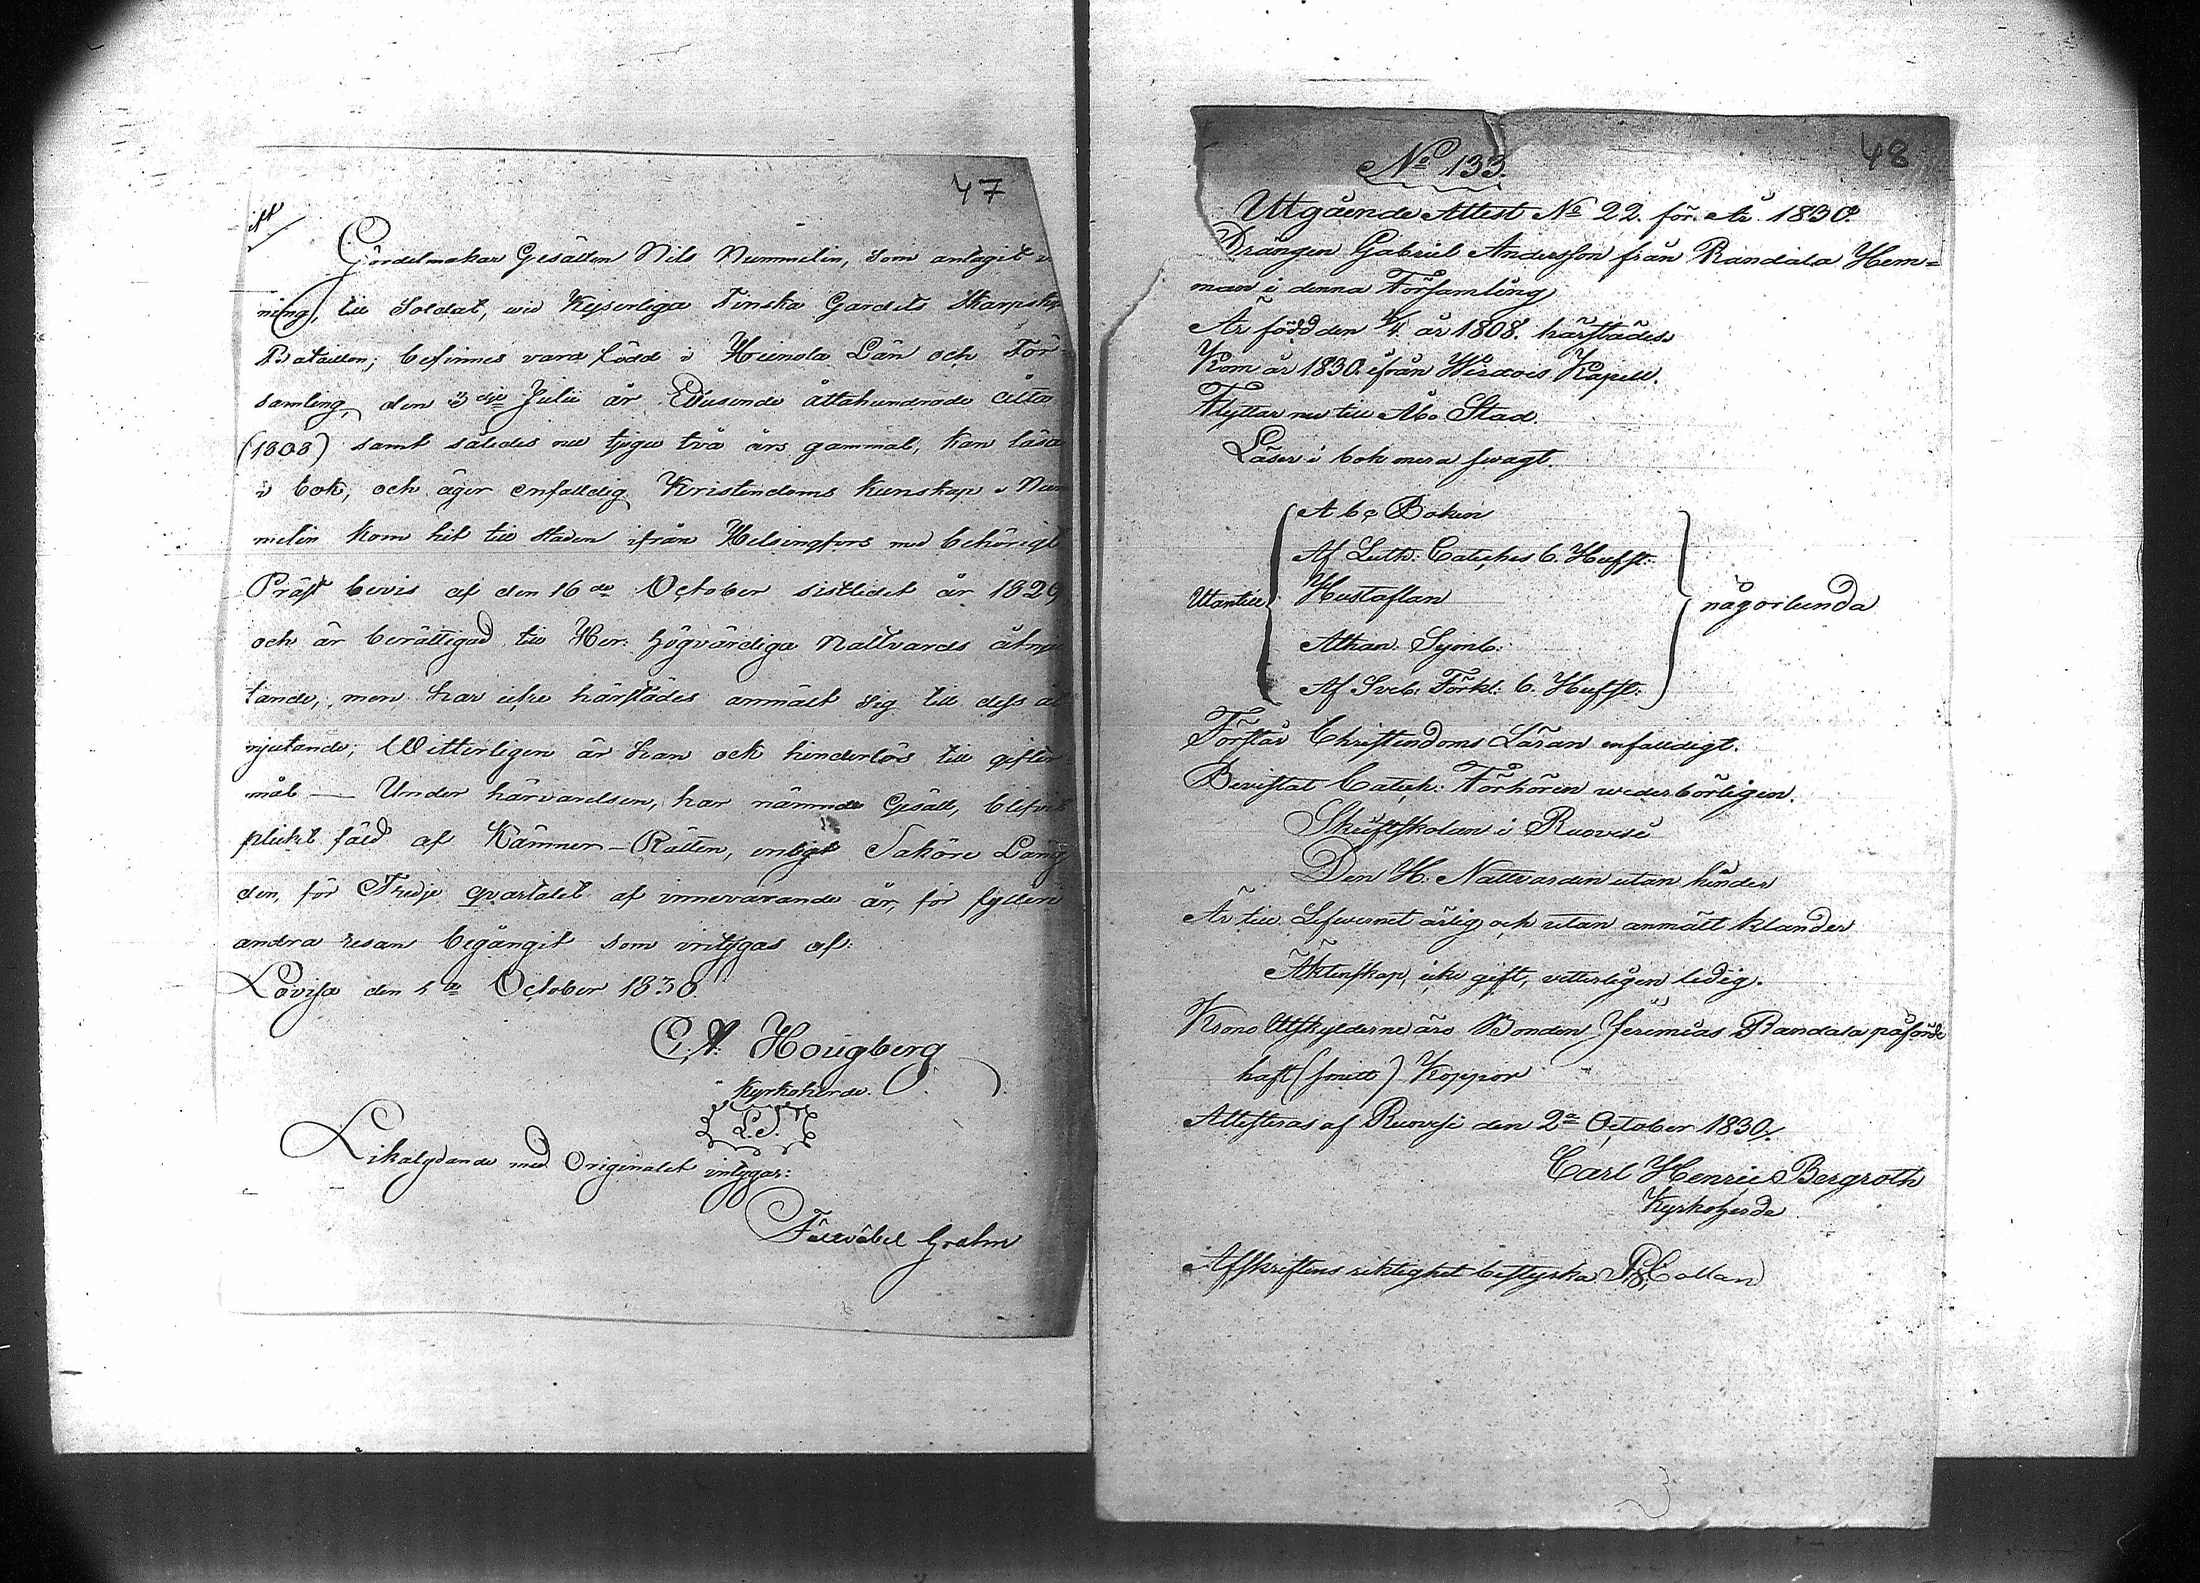 47
Gördelmakar Gesällen Nils Nummelin, som antagit v
ning, till Soldat, vid Kejserliga Finska Gardets Skarpsky
Bataillon; befinnes vara född i Heinola Län och För-
samling, den 3die Julii år Ettusende åttahundrade åtta
(1808) samt således nu tjugu två års gammal, kan läsa
i bok, och äger enfaldig Kristendoms kunskap. Num
melin kom hit till staden ifrån Helsingfors med behörigt
Präst bevis af den 16de October sistledet år 1829
och är berättigad till Her: högvärdiga Nattvards åtnju
tande, men har icke härstädes anmält sig till dess åt
njutande; Witterligen är han ock hinderlös till gifter
mål — Under härvarelsen, har nämnde Gesäll, blifvit
plickt fäld af Kämner-Rätten, enligt Saköre Läng
den, för Tredje qvartalet af innevarande år, för fylleri
andra resan begånget som intygas af:
Lovisa den 5te October 1830.
C. A. Hougberg
Kyrkoherde.
L.S.
Likalydande med Originalet intygar:
Fältväbel Grahn
48
No 133.
Utgående Attest No 22. för År 1830.
Drängen Gabriel Andersson från Randala Hem=
man i denna Församling
Är född den /4. år 1808. härstädes
Kom år 1830. ifrån Wirdois Kapell.
Flyttar nu till Åbo Stad.
Läser i bok mera swagt.
Utantill
Abc Boken
Af Luth: Catches 6. Hufst:
Hustaflan
Athan. Symb:
Af Sveb: Förkl: 6. Hufst:
någorlunda
Förstår Christendoms Läran enfaldigt.
Bevistat Catech: Förhören wederbörligen.
Skriftskolan i Ruovesi
Den H. Nattvarden utan hinder
Är till Lefwernet ärlig och utan anmält klander
Äktenskap, icke gift, vetterligen ledig.
Krono Utskylderne äro Bonden Jeremias Randala påförde
haft (smitt) Koppor
Attesteras af Ruovesi den 2a October 1830.
Carl Henric Bergroth
Kyrkoherde
Afskriftens riktighet bestyrka Collan